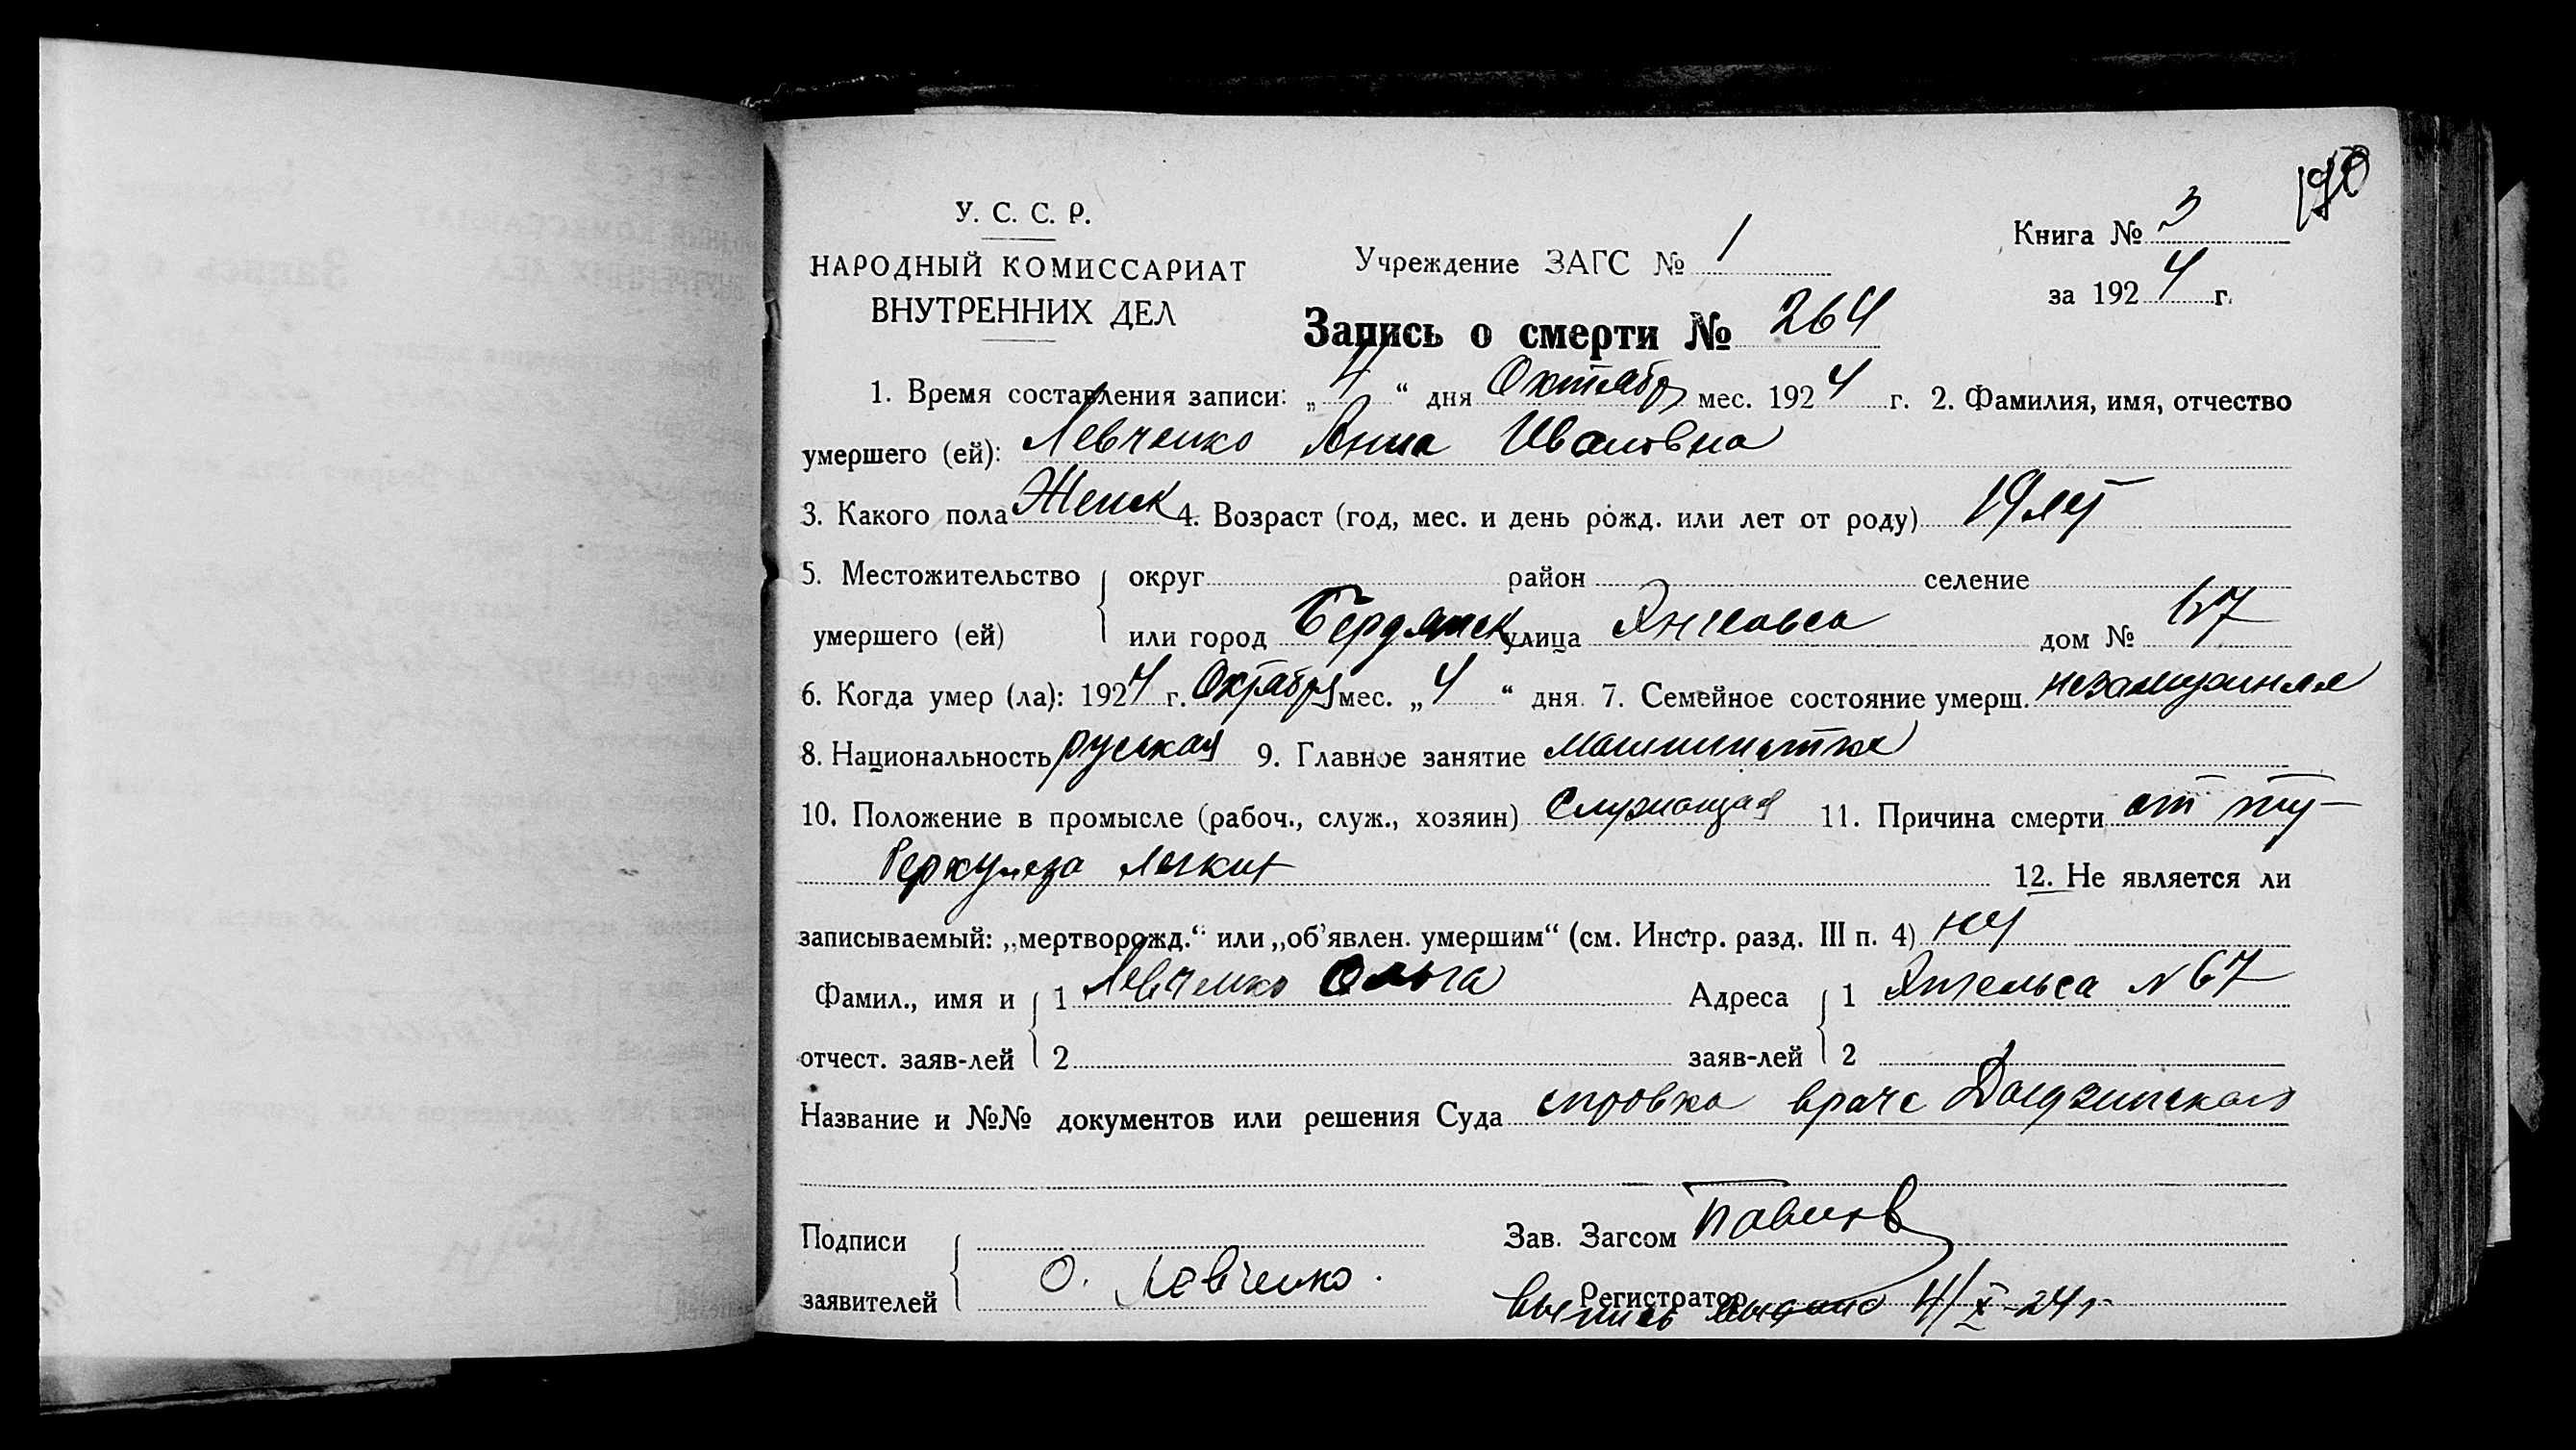 190
У. С. С. Р.
НАРОДНЫЙ КОМИССАРИАТ
ВНУТРЕННИХ ДЕЛ
Учреждение ЗАГС № 1
Книга № 3
за 1924 г.
Запись о смерти № 264
1. Время составления записи: „4“ дня Октября мес. 1924 г. 2. Фамилия, имя, отчество
умершего (ей): Левченко Анна Ивановна
3. Какого пола Женск 4. Возраст (год, мес. и день рожд. или лет от роду) 19 лет
5. Местожительство округ район селение
умершего (ей) или город Бердянск улица дом № 67
6. Когда умер (ла): 1924 г. Октября мес. „4“ дня. 7. Семейное состояние умерш. незамужняя
8. Национальность руская 9. Главное занятие машинистка
10. Положение в промысле (рабоч., служ., хозяин) Служащая 11. Причина смерти от ту-
беркулеза легких 12. Не является ли
записываемый: „мертворожд.“ или „об'явлен. умершим“ (см. Инстр. разд. III п. 4) нет
Фамил., имя и 1 Левченко Ольга Адреса 1 Янгельса N 67
отчест. заяв-лей 2 заяв-лей 2
Название и №№ документов или решения Суда справка врача
Подписи Зав. Загсом
заявителей О. Левченко. Регистратор
выпись выдано 4/X-24 г